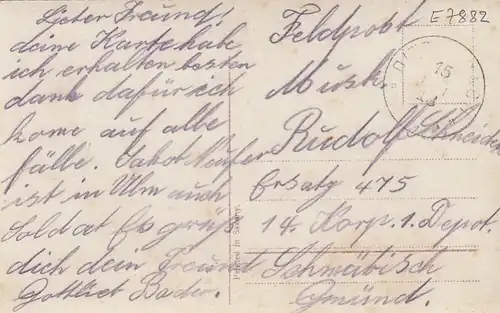 Lieber Freund!
deine Karte habe
ich erhalten besten
dank dafür ich
kome auf alle
fälle. Jakob Neufer
ist in Ulm auch
Soldat Es grüßt
dich dein Freund
Bader.
E 7882
Feldpost
15
Musk.
Rudolf Schneider
Ersatz 475
14. Korp. 1. Depot.
Schwäbisch
Gmünd.
Printed in